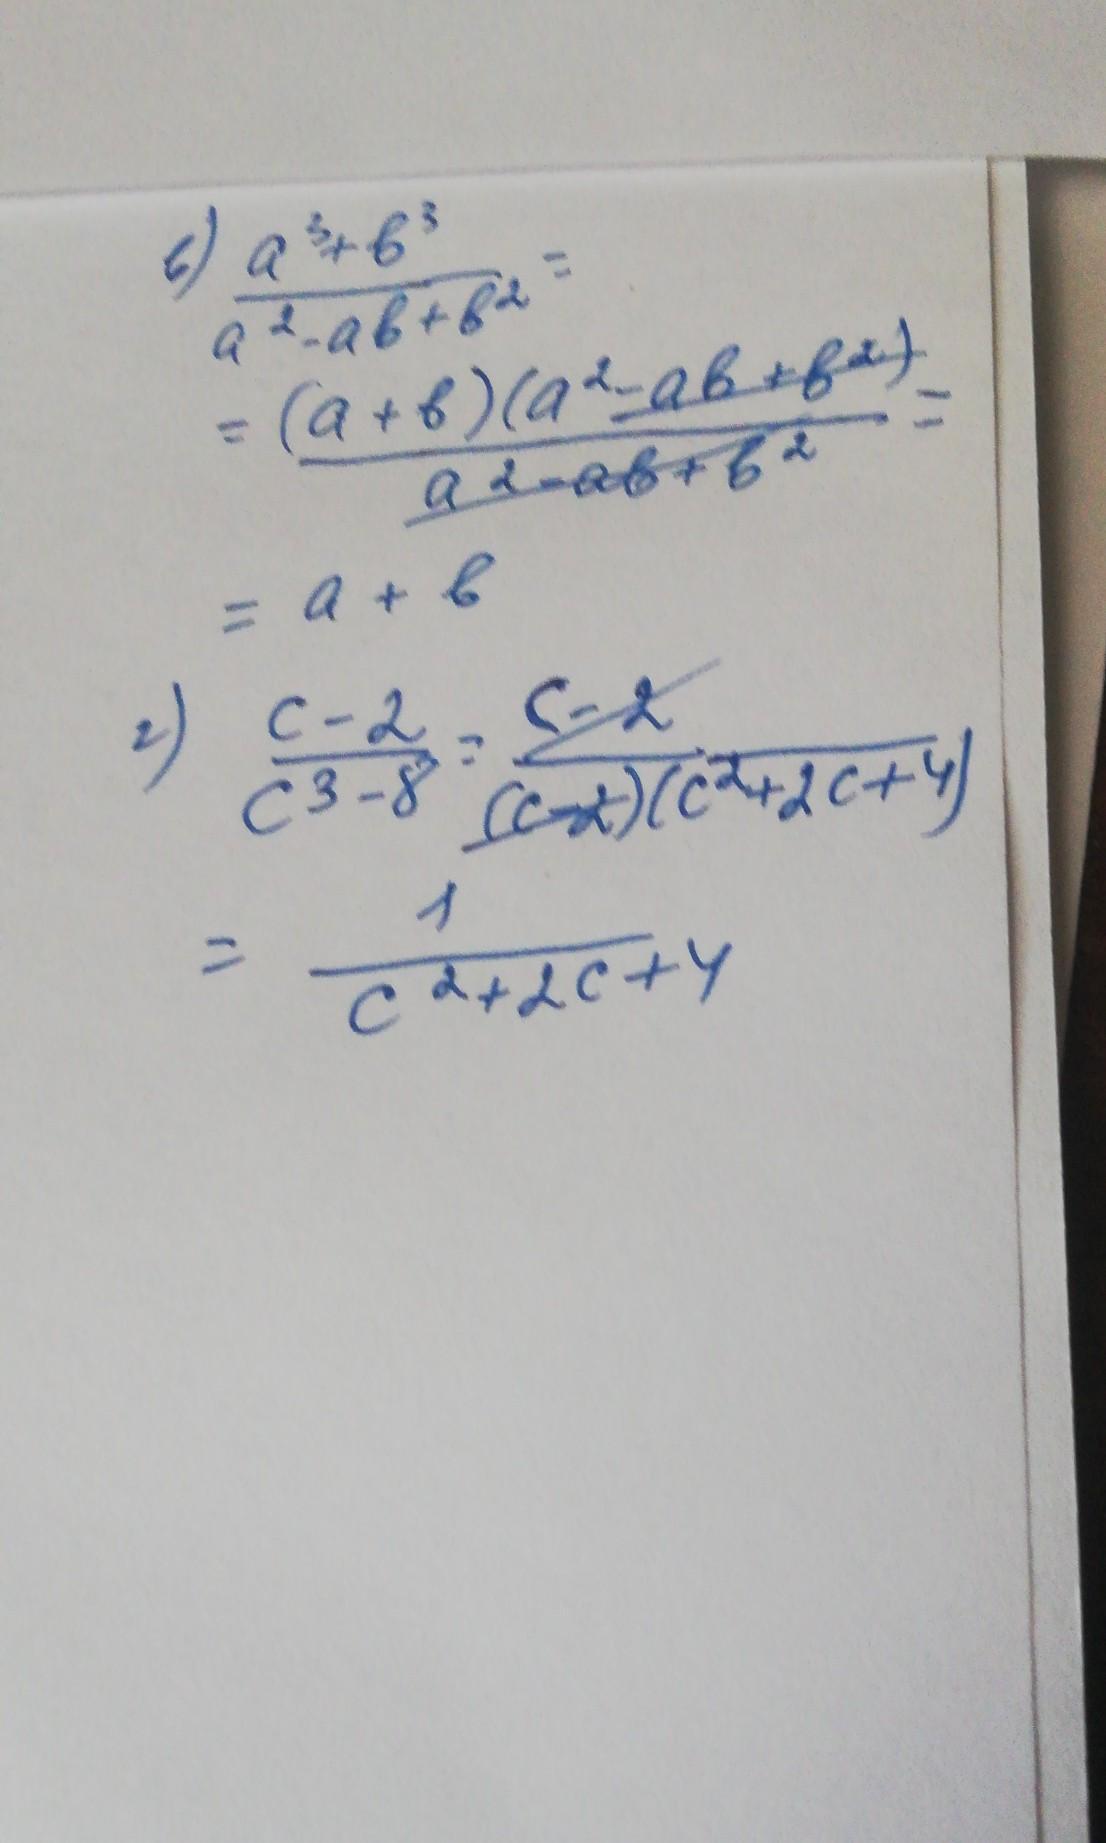 в) a³+b³ / a²-ab+b² =
= (a+b)(a²-ab+b²) / a²-ab+b² =
= a + b
г) c-2 / c³-8 = c-2 / (c-2)(c²+2c+4)
= 1 / c²+2c+4